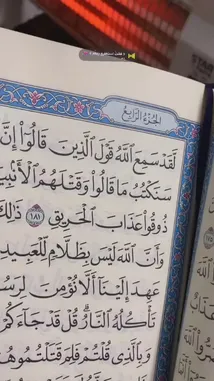 الجزء الرابع
لَقَدْ سَمِعَ اللَّهُ قَوْلَ الَّذِينَ قَالُوا إِنَّ
سَنَكْتُبُ مَا قَالُوا وَقَتْلَهُمُ الْأَنْبِيَ
ذُوقُوا عَذَابَ الْحَرِيقِ ١٨١ ذَلِكَ
وَأَنَّ اللَّهَ لَيْسَ بِظَلَّامٍ لِلْعَبِيدِ
عَهِدَ إِلَيْنَا أَلَّا نُؤْمِنَ لِرَسُو
تَأْكُلُهُ النَّارُ قُلْ قَدْ جَاءَكُمْ
وَبِالَّذِي قُلْتُمْ فَلِمَ قَتَلْتُمُوهُ